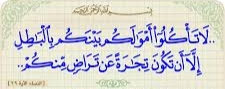 بسم الله الرحمن الرحيم
..لَا تَأْكُلُوٓا۟ أَمْوَٰلَكُم بَيْنَكُم بِٱلْبَٰطِلِ
إِلَّآ أَن تَكُونَ تِجَٰرَةً عَن تَرَاضٍ مِّنكُمْ..
[النساء الآية ٢٩]